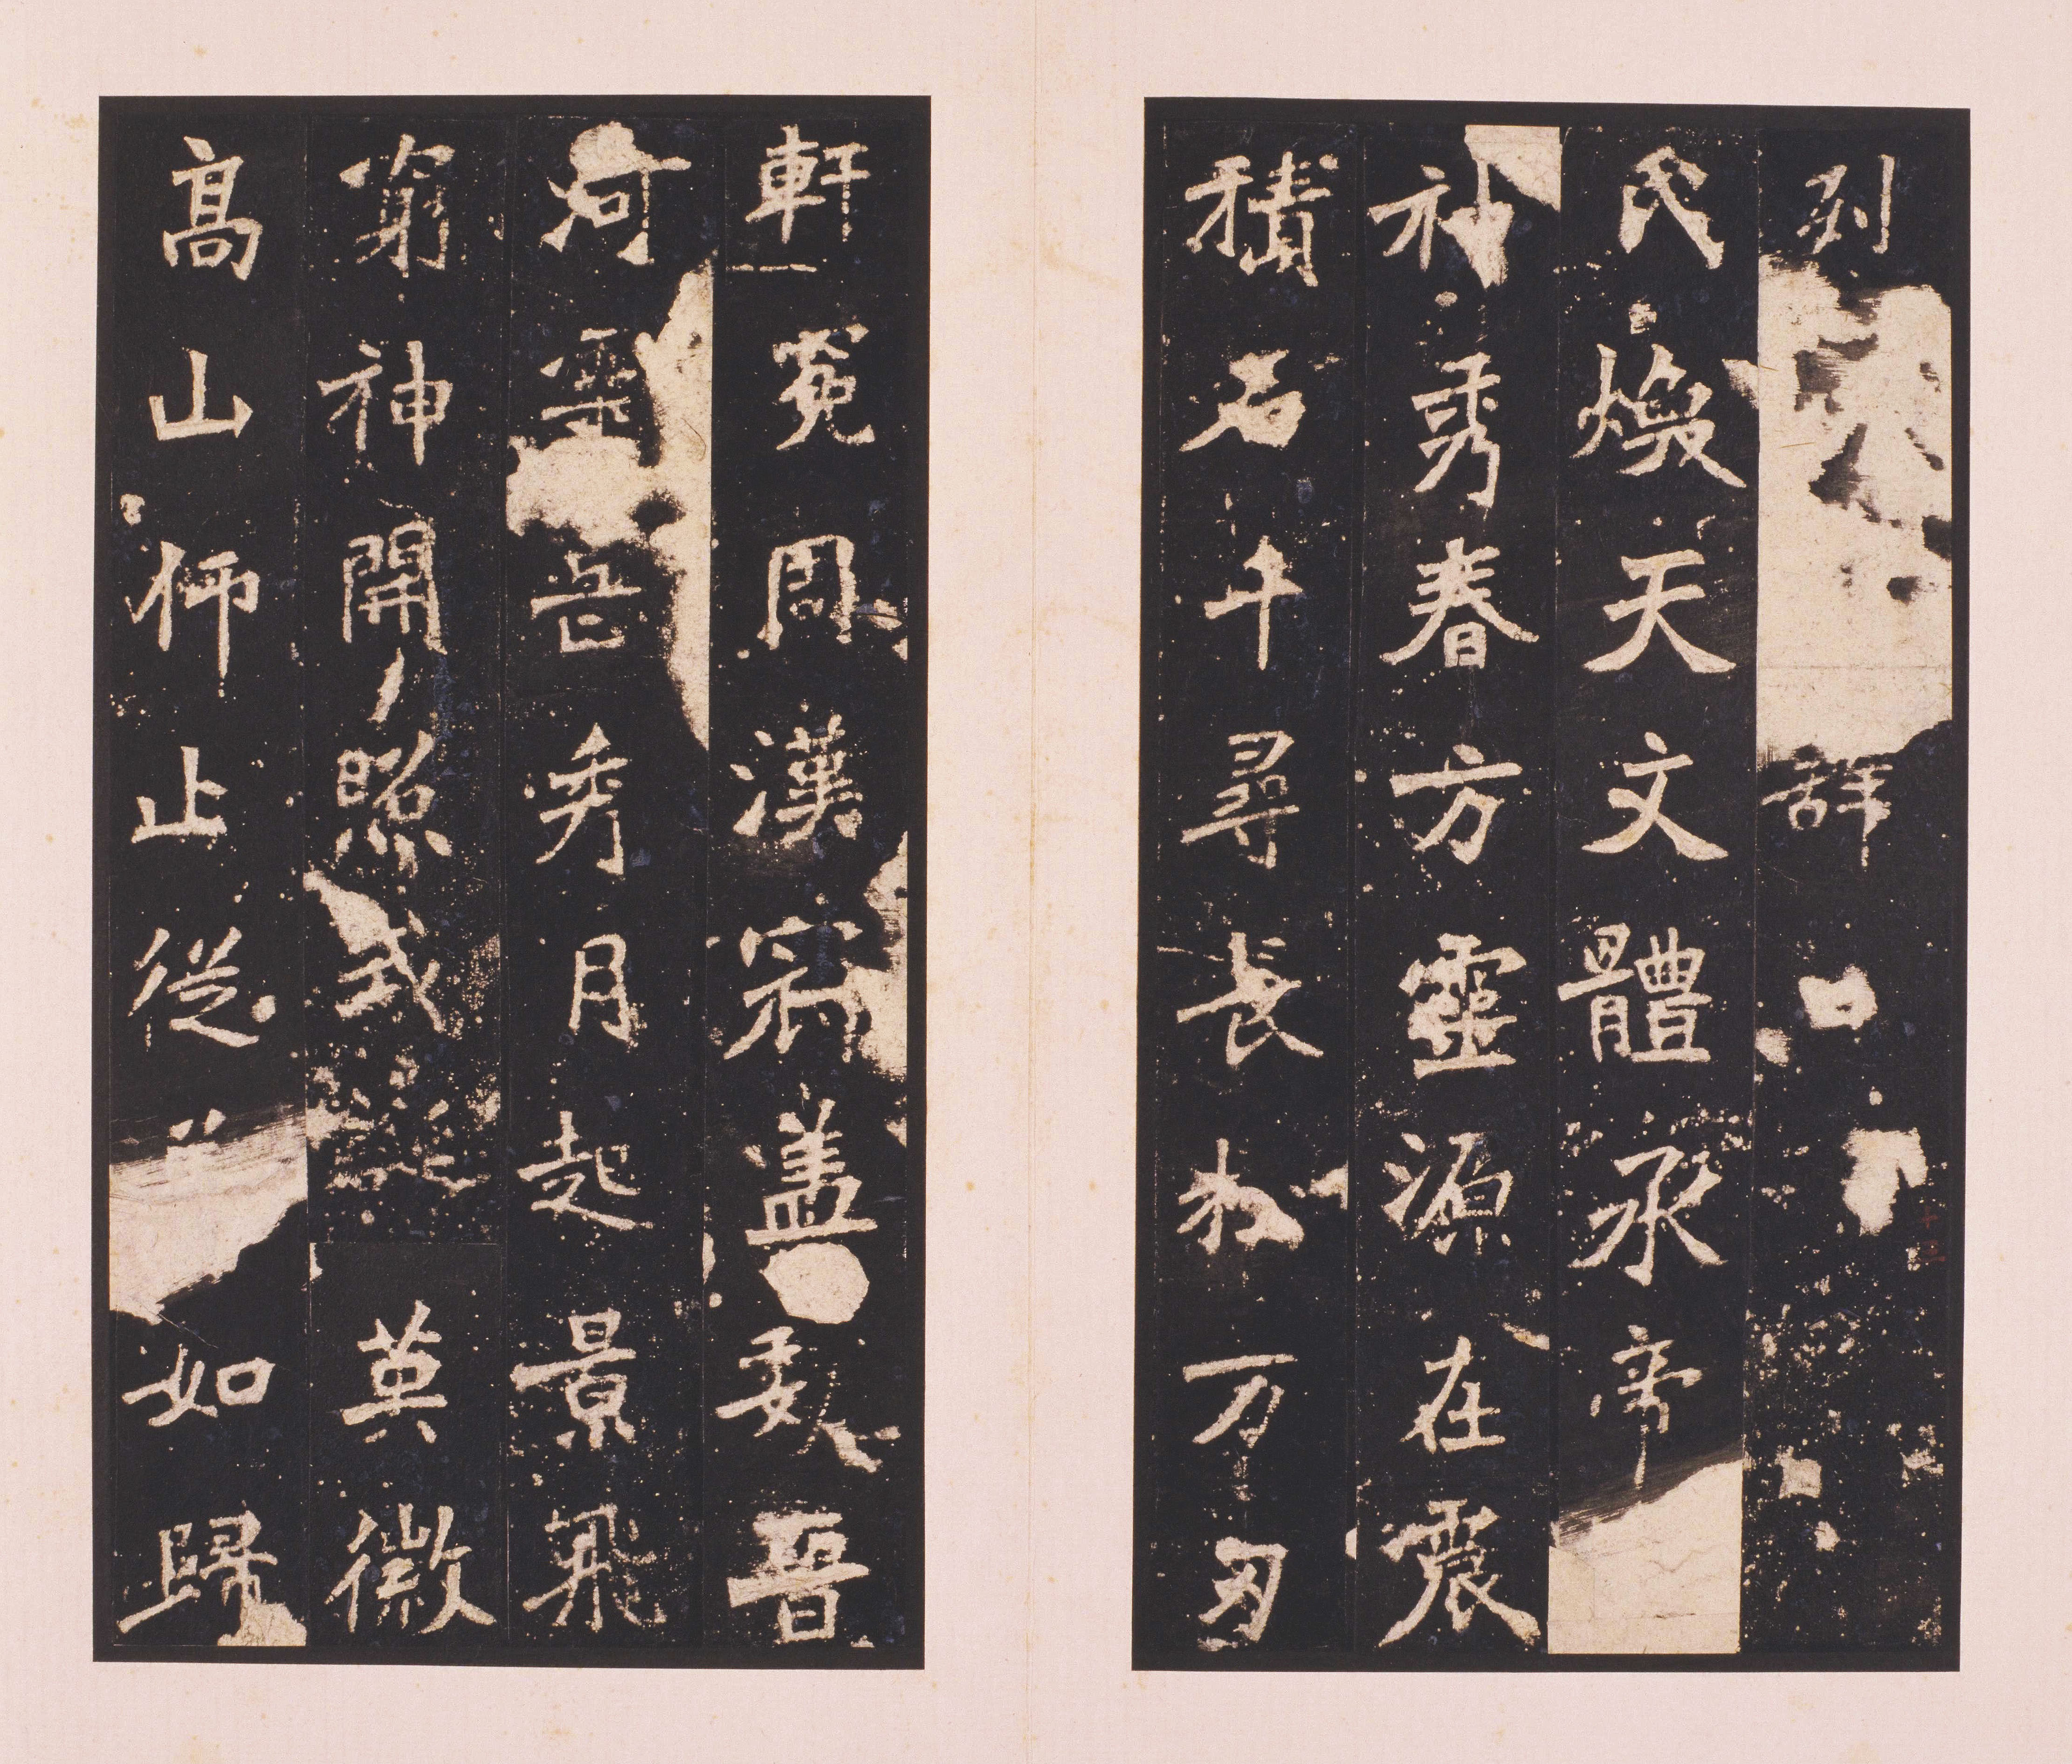 列辞
氏煥天文體承帝
神秀春方靈源在震
積石千尋長松万刃
軒冕周漢冠盖魏晉
河靈岳秀月起景飛
窮神開照式誕英徽
高山仰止從如歸